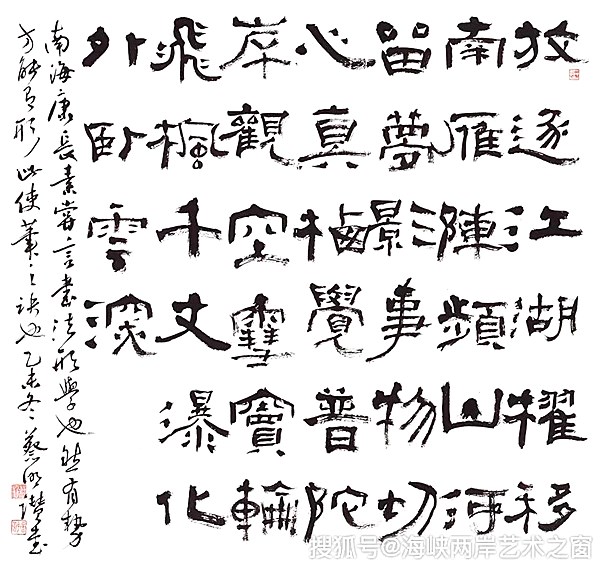 放逐江湖櫂移
南雁陣頻山河
留夢影事物切
心真栖覺普陀
岸觀空靈寶輪
飛楓千丈瀑化
外臥雲深
南海康長素嘗言書法形學也然有勢
方能形此使筆之訣也乙未冬蔡明讚書
搜狐号@海峡两岸艺术之窗